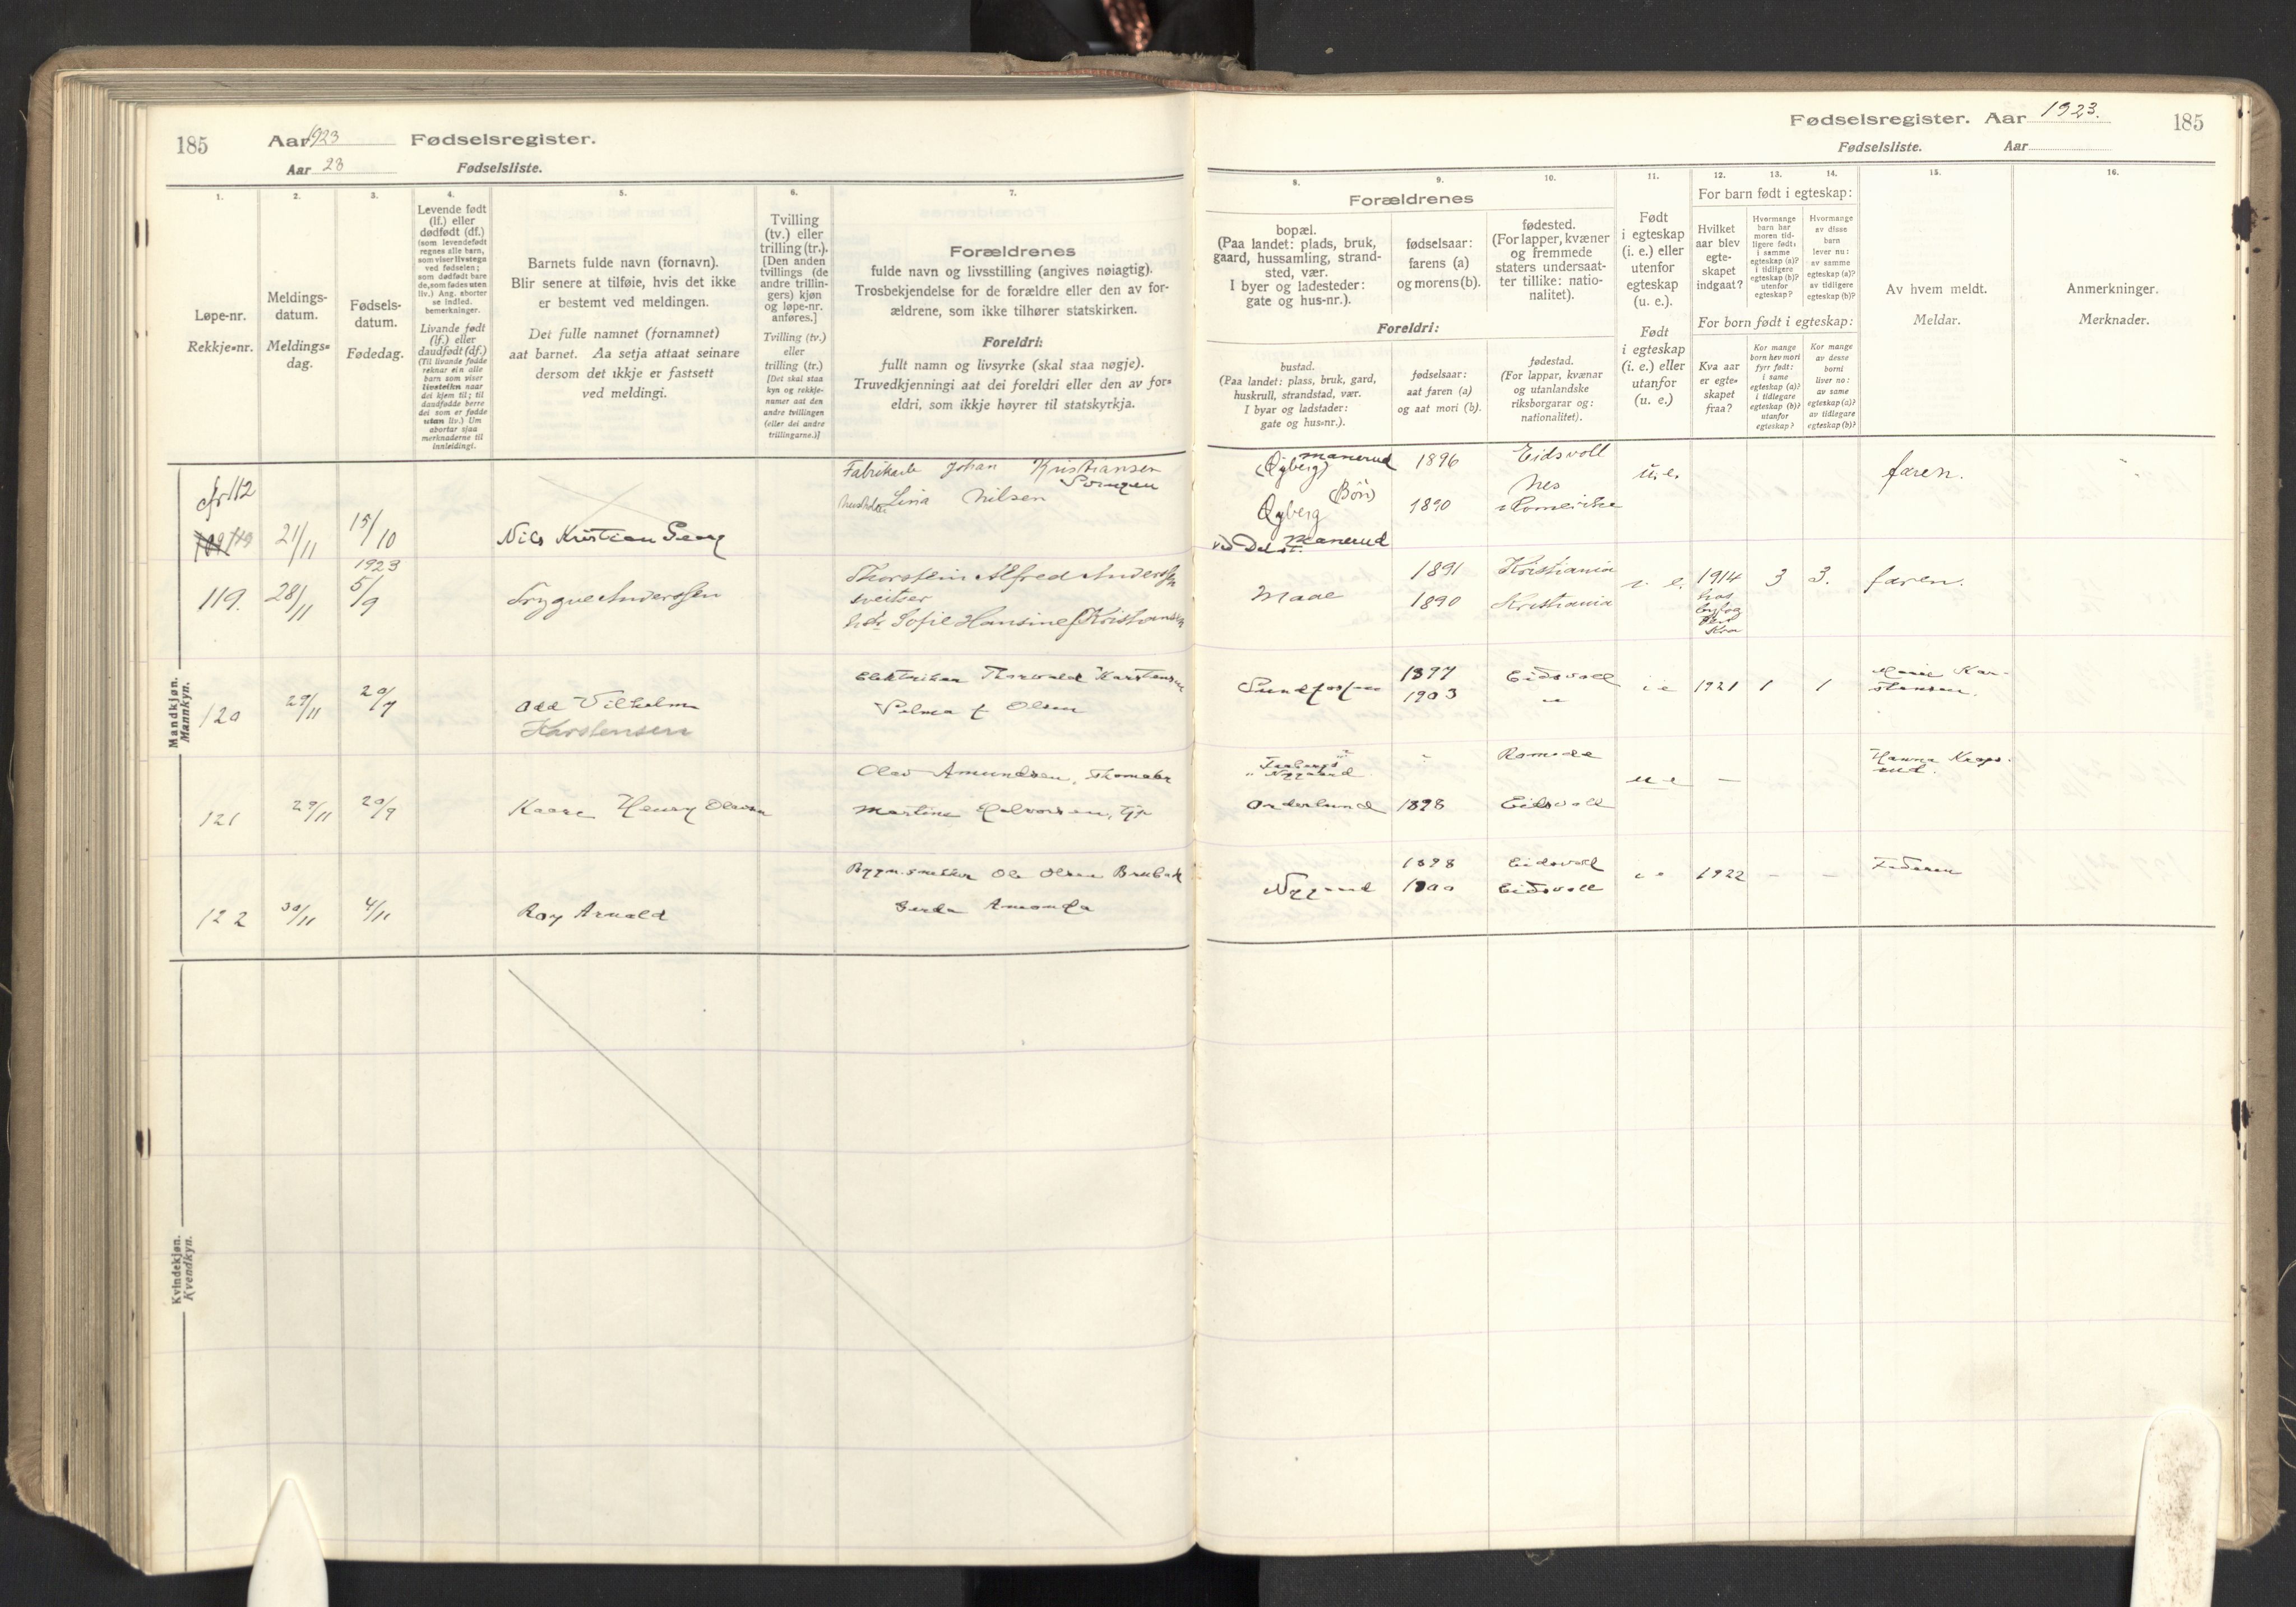 185
Aar 1923 Fødselsregister.
Aar 23 Fødselsliste.
1.
Løpe-nr.
Rekkje-nr.
2.
Meldings-
datum.
Meldings-
dag.
3.
Fødsels-
datum.
Fødedag.
4.
Levende født
(lf.) eller
dødfødt (df.)
(som levendefødt
regnes alle barn,
som viser livstegn
ved fødselen;
som dødfødt bare
de, som fødes uten
liv.) Ang. aborter
se indled.
bemerkninger.
Livande født
(lf.) eller
daudfødt (df.)
(Til livande fødde
reknar ein alle
barn som viser
livsteikn naar
dei kjem til; til
daudfødde berre
dei som er fødde
utan liv.) Um
abortar sjaa
merknaderne til
innleidingi.
5.
Barnets fulde navn (fornavn).
Blir senere at tilføie, hvis det ikke
er bestemt ved meldingen.
Det fulle namnet (fornamnet)
aat barnet. Aa setja attaat seinare
dersom det ikkje er fastsett
ved meldingi.
6.
Tvilling
(tv.) eller
trilling (tr.).
[Den anden
tvillings (de
andre trillin-
gers) kjøn
og løpe-nr.
anføres.]
Tvilling (tv.)
eller
trilling (tr.)
[Det skal staa
kyn og rekkje-
numer aat den
andre tvillingen
(eller dei andre
trillingarne.)]
7.
Forældrenes
fulde navn og livsstilling (angives nøiagtig).
Trosbekjendelse for de forældre eller den av for-
ældrene, som ikke tilhører statskirken.
Foreldri:
fullt namn og livsyrke (skal staa nøgje).
Truvedkjenningi aat dei foreldri eller den av for-
eldri, som ikkje høyrer til statskyrkja.
Mandkjøn.
Mannkyn.
112
21/11
15/10
Nils Kristian Georg
Fabrikarb Johan Kristiansen
Lina Nilsen
119.
28/11
1923
5/9
Trygve Anderssen
Thorstein Alfred Anderssen
sveitser
Sofie Hansine f Kristiansen
120
29/11
20/9
Odd Vilhelm
Karstensen
Elektriker Thorvald Karstensen
Selma f Olsen
121
29/11
20/9
Kaare Henry Olavsen
Olav Amundsen,
Martine Halvorsen,
122
30/11
4/11
Roy Arnold
Ole Olsen
Gerda Amanda
Kvindekjøn.
Kvendkyn.
Fødselsregister. Aar 1923.
185
Fødselsliste. Aar
8.
Forældrenes
bopæl.
(Paa landet: plads, bruk,
gaard, hussamling, strand-
sted, vær.
I byer og ladesteder:
gate og hus-nr.).
9.
fødselsaar:
farens (a)
og morens (b).
10.
fødested.
(For lapper, kvæner
og fremmede
staters undersaat-
ter tillike: natio-
nalitet).
Foreldri:
bustad.
(Paa landet: plass, bruk, gard,
huskrull, strandstad, vær.
I byar og ladstader:
gate og hus-nr.).
fødselsaar:
aat faren (a)
og aat mori (b).
fødestad.
(For lappar, kvænar
og utanlandske
riksborgarar og:
nationalitet).
11.
Født
i egteskap
(i. e.) eller
utenfor
egteskap
(u. e.).
Født
i egteskap
(i. e.) eller
utanfor
(u. e.)
12. 13. 14.
For barn født i egteskap:
Hvilket
aar blev
egte-
skapet
indgaat?
Hvormange
barn har
moren tid-
ligere født:
i samme
egteskap (a)?
i tidligere
egteskap (b)?
utenfor
egteskap?
Hvormange
av disse
barn
lever nu:
av samme
egteskap (a)?
av tidligere
egteskap (b)?
For born født i egteskap:
Kva aar
er egte-
skapet
fraa?
Kor mange
born hev mori
fyrr født:
i same
egteskap (a)?
i tidlegare
egteskap (b)?
utanfor
egteskap?
Kor mange
av desse
borni
liver no:
av same
egteskap (a)?
av tidlegare
egteskap (b)?
15.
Av hvem meldt.
Meldar.
16.
Anmerkninger.
Merknader.
(Øyberg) Manerud
1896
Eidsvoll
u. e.
faren.
(Bøn)
Øyberg
1890
Nes
Romerike
Manerud
Maae
1891
Kristiania
1890
Kristiania
i. e.
1914
3
3.
faren.
Sundfossen
1897
Eidsvold
1903
"
i e
1921
1
1
Marie Kar-
stensen.
Nygaard
Romedal
Orderlund
1898
Eidsvold
u e
—
Hanna
Nygaard
1898
Eidsvold
1900
Eidsvold
i e
1922
–
–
Faderen